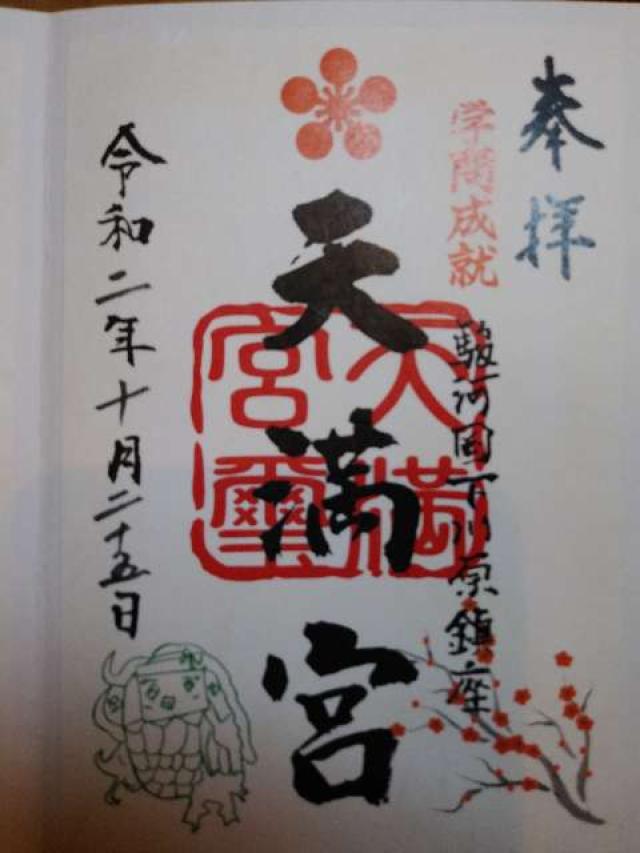 奉拝
学問成就
駿河国下川原鎮座
天満宮
天満宮璽
令和二年十月二十五日